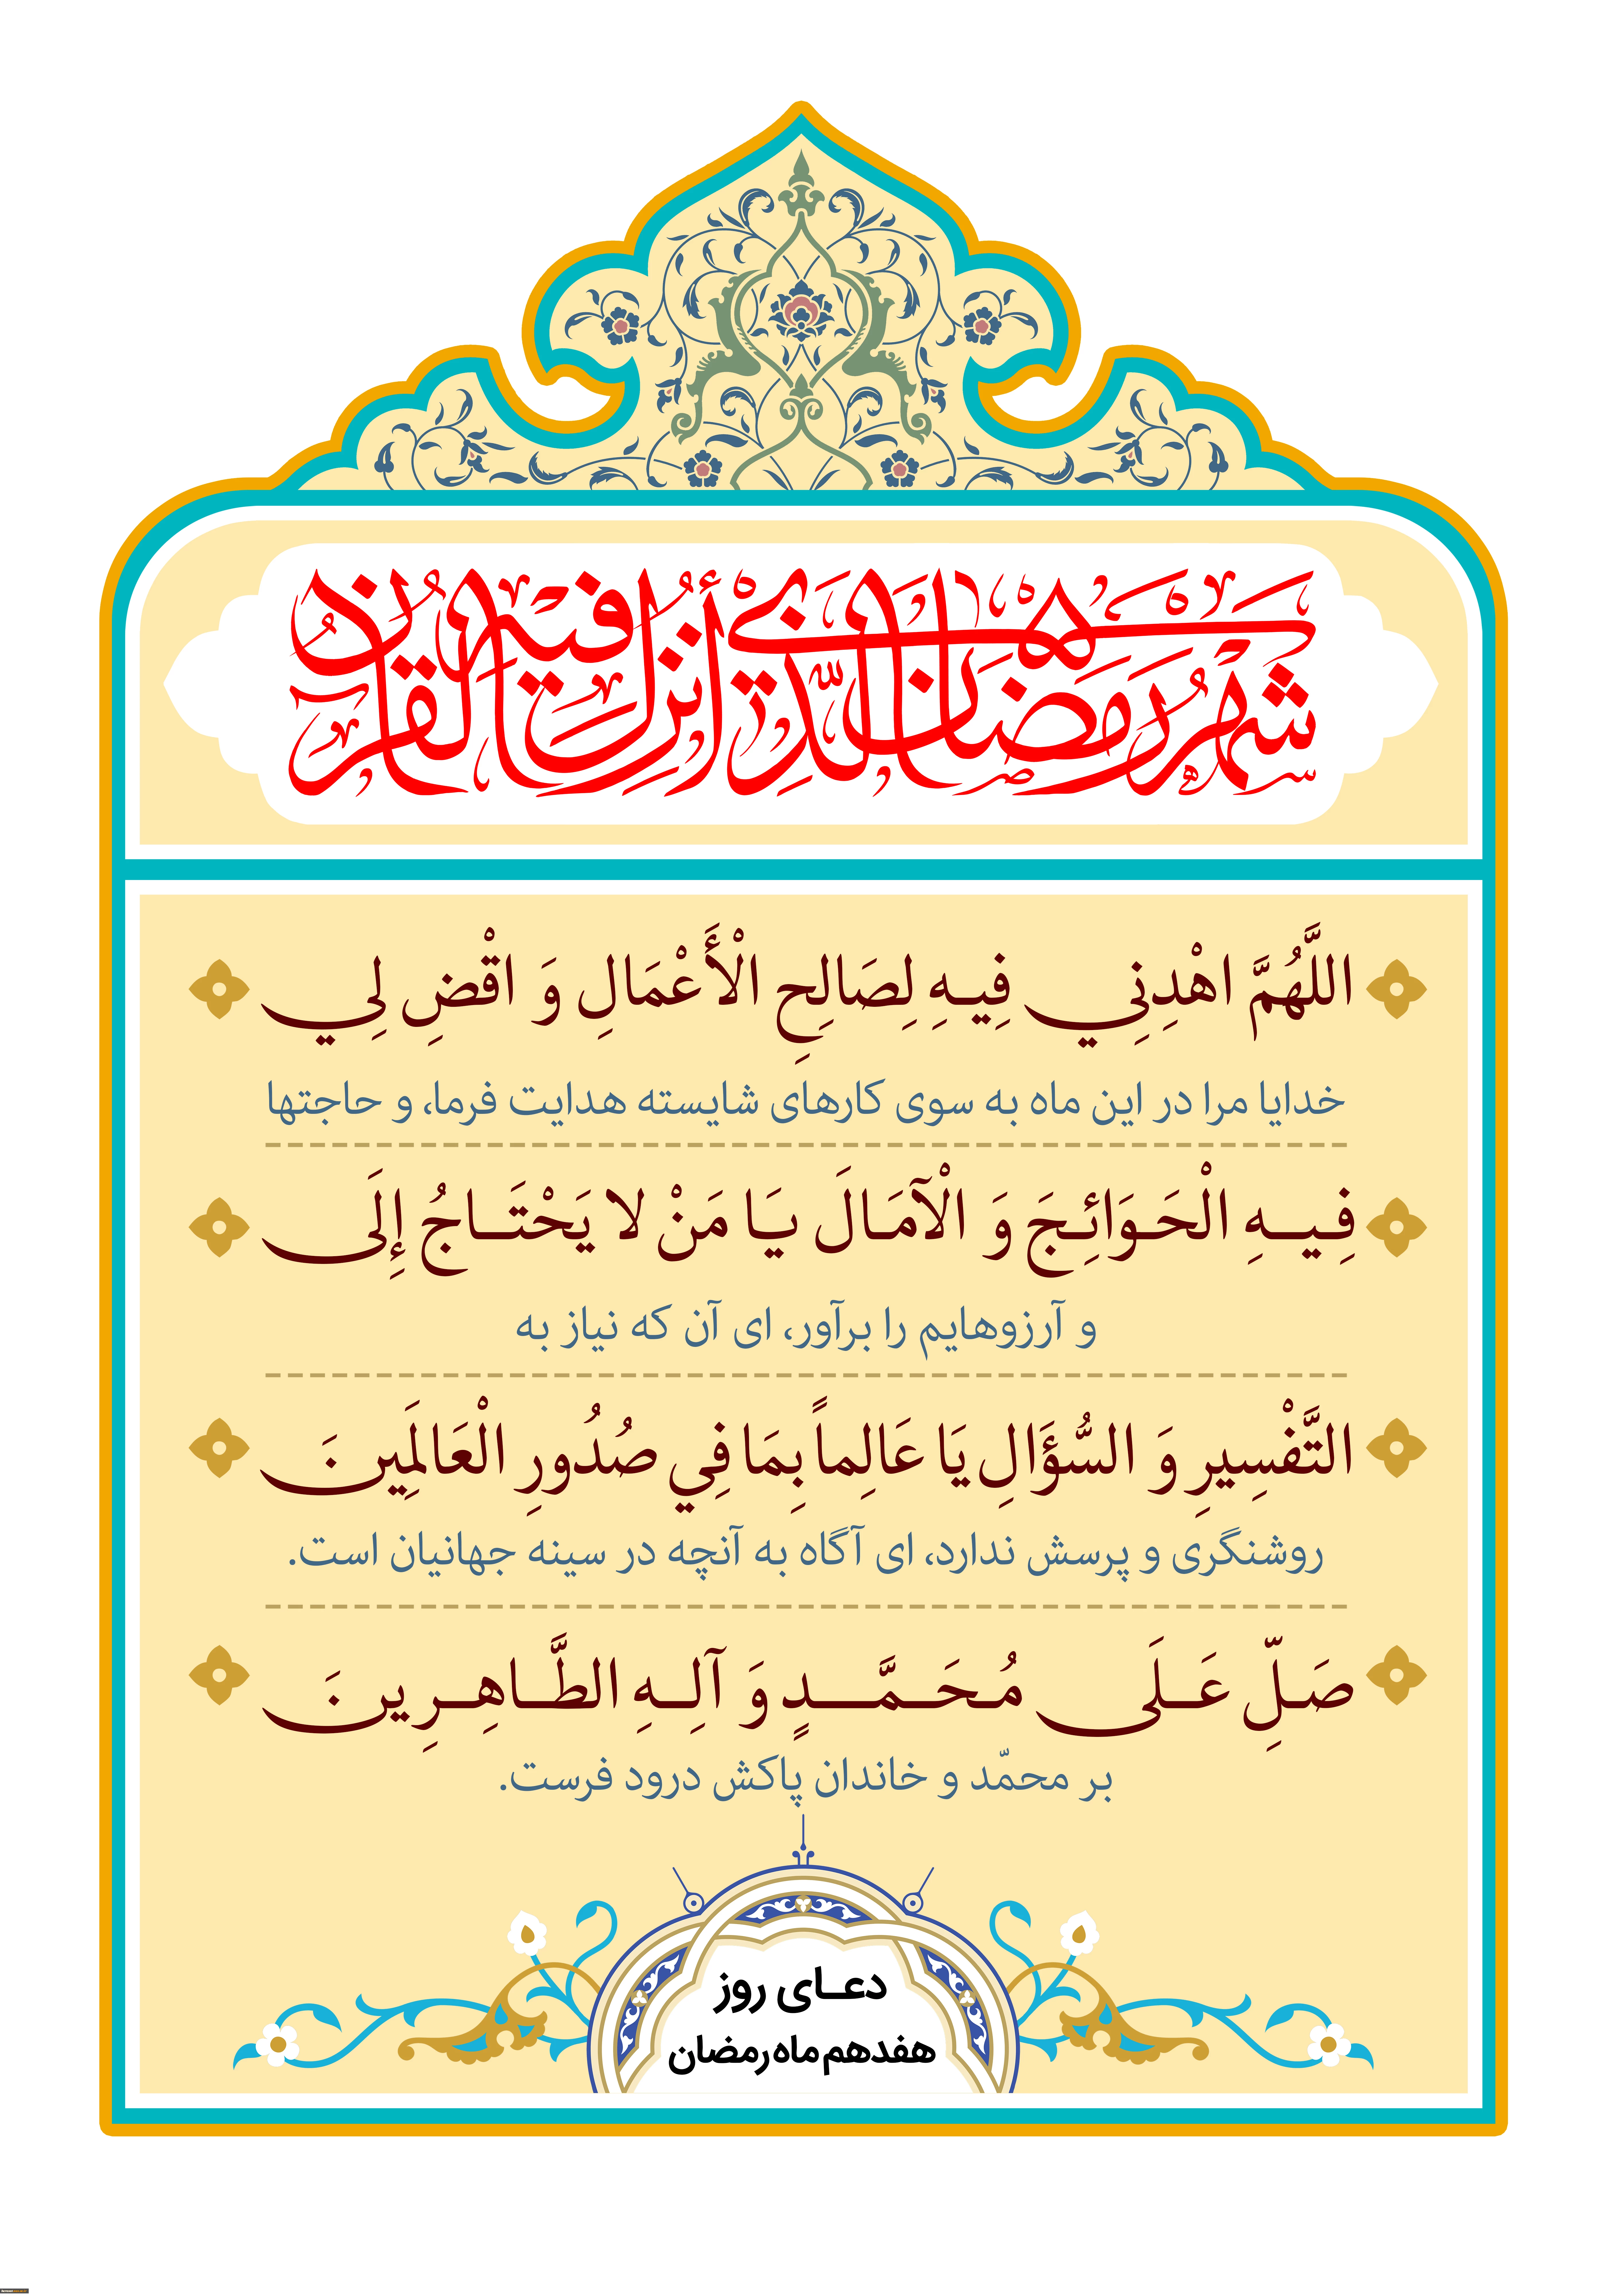 شهر رمضان الذي أنزل فيه القرآن
اللَّهُمَّ اهْدِنِي فِيهِ لِصَالِحِ الْأَعْمَالِ وَ اقْضِ لِي
خدایا مرا در این ماه به سوی کارهای شایسته هدایت فرما، و حاجتها
فِيهِ الْحَوَائِجَ وَ الْآمَالَ يَا مَنْ لا يَحْتَاجُ إِلَى
و آرزوهایم را برآور، ای آن که نیاز به
التَّفْسِيرِ وَ السُّؤَالِ يَا عَالِماً بِمَا فِي صُدُورِ الْعَالَمِينَ
روشنگری و پرسش ندارد، ای آگاه به آنچه در سینه جهانیان است.
صَلِّ عَلَى مُحَمَّدٍ وَ آلِهِ الطَّاهِرِينَ
بر محمّد و خاندان پاکش درود فرست.
دعای روز
هفدهم ماه رمضان